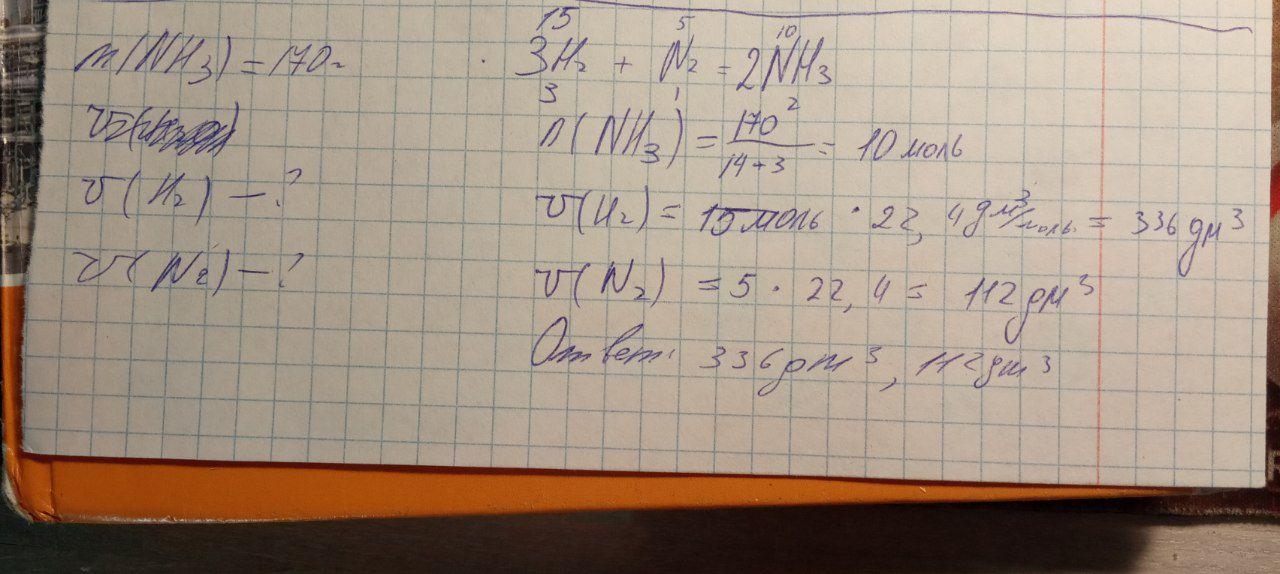 m(NH₃) = 170г
V(H₂) – ?
V(N₂) – ?
15 5 10
3H₂ + N₂ = 2NH₃
3 1 2
n(NH₃) = 170 / 14+3 = 10 моль
V(H₂) = 15 моль · 22,4 дм³/моль = 336 дм³
V(N₂) = 5 · 22,4 = 112 дм³
Ответ: 336 дм³, 112 дм³